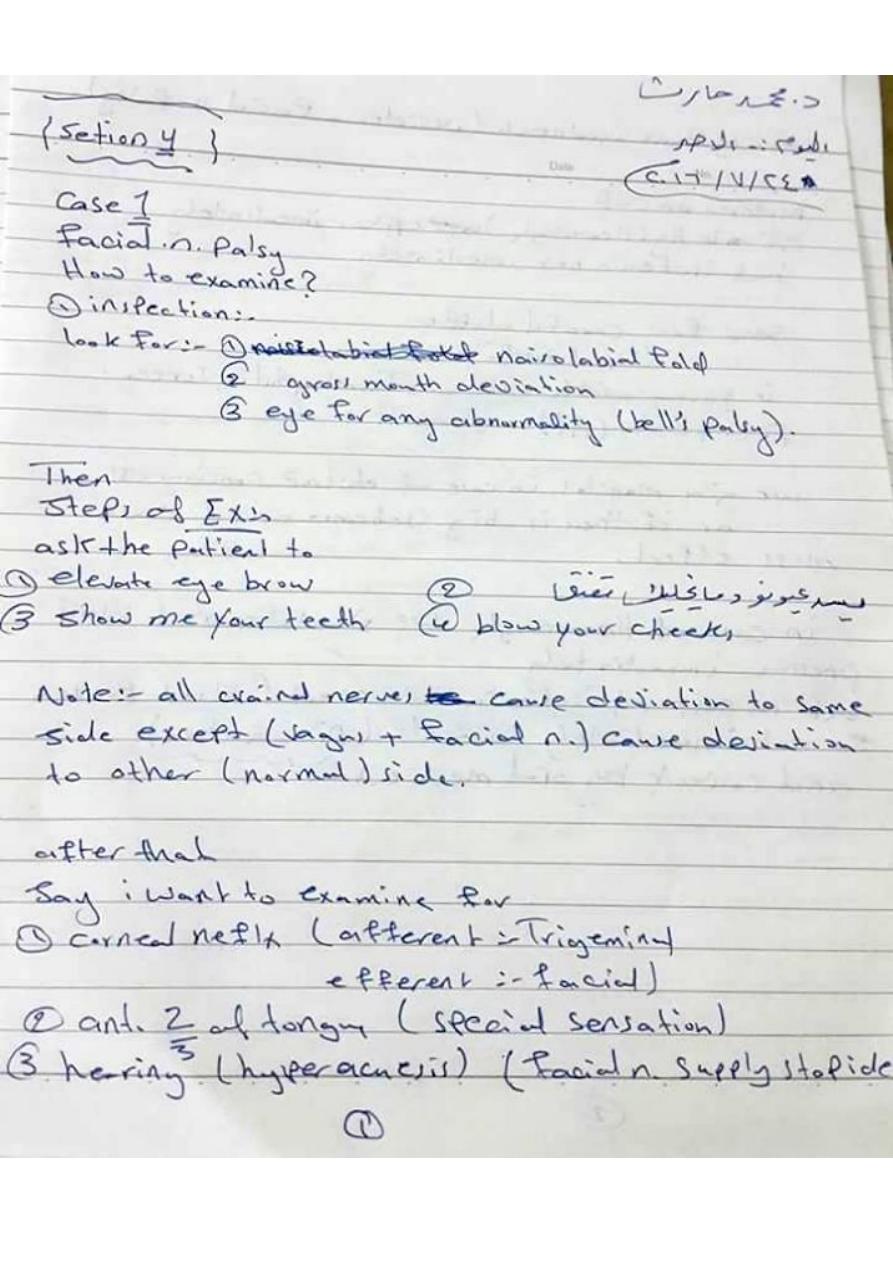 د. محمد حارث
{ Setion 4 }
اليوم :- الاحد
Date
٢٠١٦/٧/٢٤
Case 1
facial.n. palsy
How to examine?
① inspection:-
look for:- ① naisolabial fold
② gross mouth deviation
③ eye for any abnormality (bell's palsy).
Then
Steps of Exn
ask the patient to
① elevate eye brow ② يسد عيونو وما يخليك تفتق
③ show me your teeth ④ blow your cheeks
Note:- all crainal nerves cause deviation to same
side except (vagus + facial n.) cause deviation
to other (normal) side.
after that
Say i want to examine for
① corneal reflx (afferent :- Trigeminal
efferent :- facial)
② ant. 2/3 of tongue (special sensation)
③ hearing (hyperacusis) (facial n. supply stapide
①